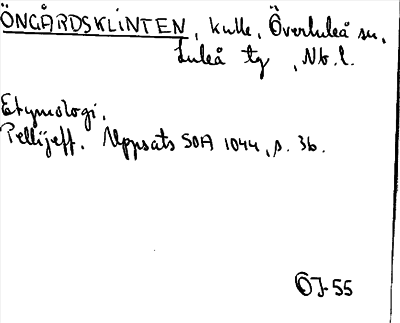 ÖNGÅRDSKLINTEN, kulle, Överluleå sn,
Luleå tg, Nb. l.
Etymologi.
Pellijeff. Uppsats SOA 1044, s. 36.
ÖJ-55